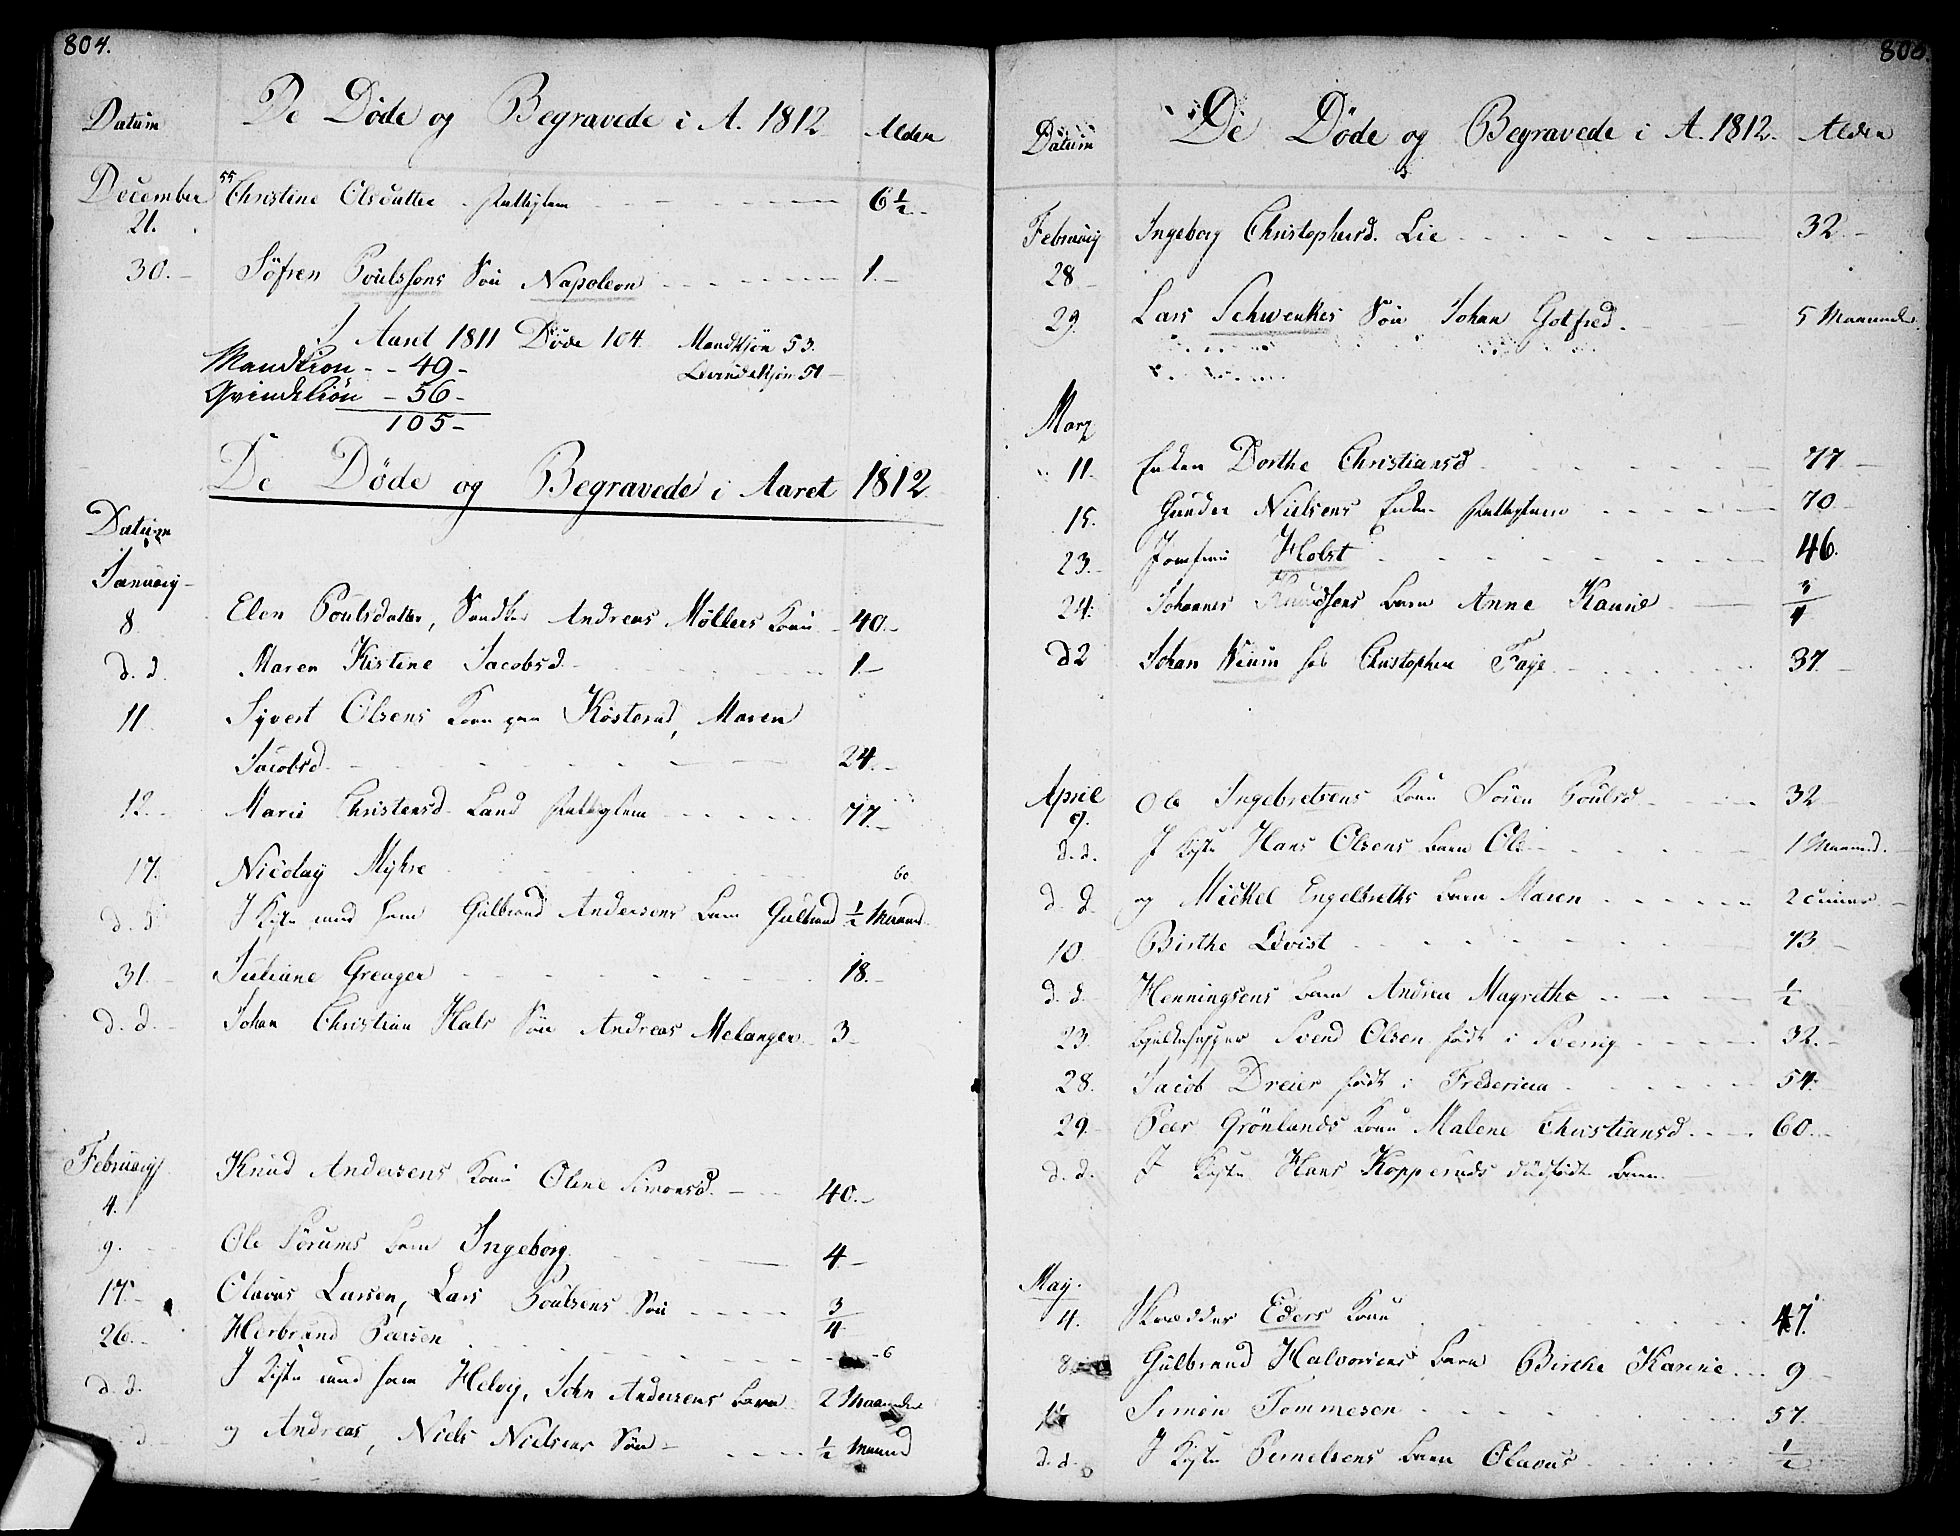 804.
Datum De Döde og Begravede i A. 1812 Alder
December 55 Christine Olsdatter - - - 6 1/2
21.
30. Söfren Poulssons Sön Napoleon - - - 1.
I Aaret 1811 Döde 104. Mandkjön 53.
Mandkion - - 49 - Qvindekjön 51
Qvindekiön - 56 -
105 -
De Döde og Begravede i Aaret 1812
Datum
January
8 Elen Poulsdatter, Andreas Möllers Kone 40.
d. d. Maren Kistine Jacobsd. 1.
11. Syvert Olsens Kone Kösterud, Maren
Jacobsd. 24.
12. Marie Christensd. Land 77.
17. Nicolay Myhre 60.
d. d. I Kiste med ham Gulbrand Andersens Barn Gulbrand 1/2 Maaned.
31. Juliane Greager 18.
d. d. Johan Christian Hals Sön Andreas Melanger 3
February Knud Andersens Kone Olene Simonsd. 40.
4.
9. Ole Sörums Barn Ingeborg 4
17. Olavus Larsen, Lars Poulsens Sön 3/4
26. Herbrand Persen 6
d. d. I Kiste med ham Helvig, John Andersens Barn 2 Maaneder
d. og Andreas, Niels Nielsens Sön 1/2 Maaned
Datum De Döde og Begravede i A. 1812. Alder
February Ingeborg Christophersd. Lie 32.
28
29. Lars Schwenkes Sön Johan Gotfred. 5 Maaneder
Marz
11. Enken Dorthe Christiansd 77.
15. Gunder Nielsens Enke 70.
23. Jomfrue Holst 46.
24. Johannes Knudsens Barn Anne Karine 3/4
d d Johan hos Christopher Faye 37.
April Ole Ingebretsens Kone Sören Poulsd. 32
9.
d. d. I Kiste Hans Olsens Barn Ole 1 Maaned.
d. d. og Mickel Engelbreths Barn Maren
10. Birthe Qvist 73
d. d. Henningsens Barn Andrea Magrethe 1/2
23. Svend Olsen födt i Sverrig 32.
28. Jacob Dreier födt i Fredericia 54.
29. Peer Grönlands Kone Malene Christiansd. 60.
d. d. I Kiste Hans Kopperuds dödfödte Barn.
May.
4. Skrædder Eders Kone 47.
8 Gulbrand Halvorsens Barn Birthe Karine 9
11 Simen Tommesen 57.
d. d. I Kiste Pernelsens Barn Olavus 1/2